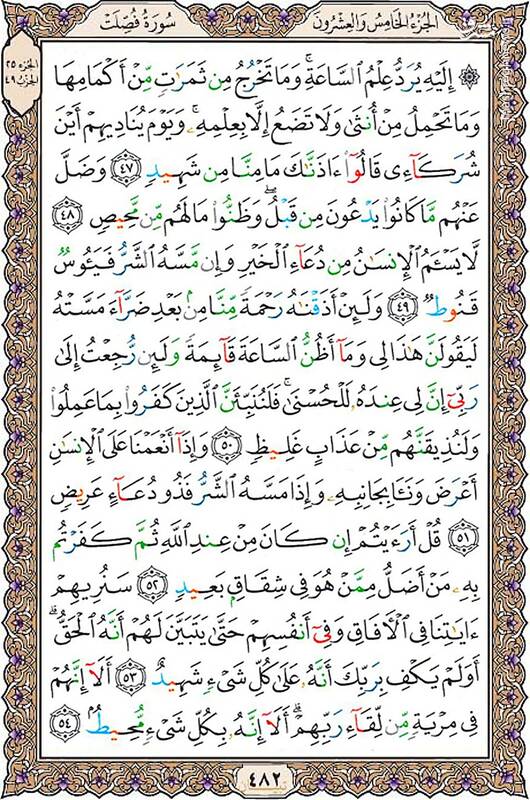 الجزء الخامس والعشرون
سورة فصلت
الجزء ٢٥
الحزب ٤٩
۞ إِلَيْهِ يُرَدُّ عِلْمُ ٱلسَّاعَةِۚ وَمَا تَخْرُجُ مِن ثَمَرَٰتٍ مِّنْ أَكْمَامِهَا
وَمَا تَحْمِلُ مِنْ أُنثَىٰ وَلَا تَضَعُ إِلَّا بِعِلْمِهِۦۚ وَيَوْمَ يُنَادِيهِمْ أَيْنَ
شُرَكَآءِى قَالُوٓا۟ ءَاذَنَّٰكَ مَا مِنَّا مِن شَهِيدٍ ٤٧ وَضَلَّ
عَنْهُم مَّا كَانُوا۟ يَدْعُونَ مِن قَبْلُۖ وَظَنُّوا۟ مَا لَهُم مِّن مَّحِيصٍ ٤٨
لَّا يَسْـَٔمُ ٱلْإِنسَٰنُ مِن دُعَآءِ ٱلْخَيْرِ وَإِن مَّسَّهُ ٱلشَّرُّ فَيَـُٔوسٌ
قَنُوطٌ ٤٩ وَلَئِنْ أَذَقْنَٰهُ رَحْمَةً مِّنَّا مِنۢ بَعْدِ ضَرَّآءَ مَسَّتْهُ
لَيَقُولَنَّ هَٰذَا لِى وَمَآ أَظُنُّ ٱلسَّاعَةَ قَآئِمَةً وَلَئِن رُّجِعْتُ إِلَىٰ
رَبِّىٓ إِنَّ لِى عِندَهُۥ لَلْحُسْنَىٰۚ فَلَنُنَبِّئَنَّ ٱلَّذِينَ كَفَرُوا۟ بِمَا عَمِلُوا۟
وَلَنُذِيقَنَّهُم مِّنْ عَذَابٍ غَلِيظٍ ٥٠ وَإِذَآ أَنْعَمْنَا عَلَى ٱلْإِنسَٰنِ
أَعْرَضَ وَنَـَٔا بِجَانِبِهِۦ وَإِذَا مَسَّهُ ٱلشَّرُّ فَذُو دُعَآءٍ عَرِيضٍ
٥١ قُلْ أَرَءَيْتُمْ إِن كَانَ مِنْ عِندِ ٱللَّهِ ثُمَّ كَفَرْتُم
بِهِۦ مَنْ أَضَلُّ مِمَّنْ هُوَ فِى شِقَاقٍۭ بَعِيدٍ ٥٢ سَنُرِيهِمْ
ءَايَٰتِنَا فِى ٱلْءَافَاقِ وَفِىٓ أَنفُسِهِمْ حَتَّىٰ يَتَبَيَّنَ لَهُمْ أَنَّهُ ٱلْحَقُّۗ
أَوَلَمْ يَكْفِ بِرَبِّكَ أَنَّهُۥ عَلَىٰ كُلِّ شَىْءٍ شَهِيدٌ ٥٣ أَلَآ إِنَّهُمْ
فِى مِرْيَةٍ مِّن لِّقَآءِ رَبِّهِمْۗ أَلَآ إِنَّهُۥ بِكُلِّ شَىْءٍ مُّحِيطٌۢ ٥٤
٤٨٢